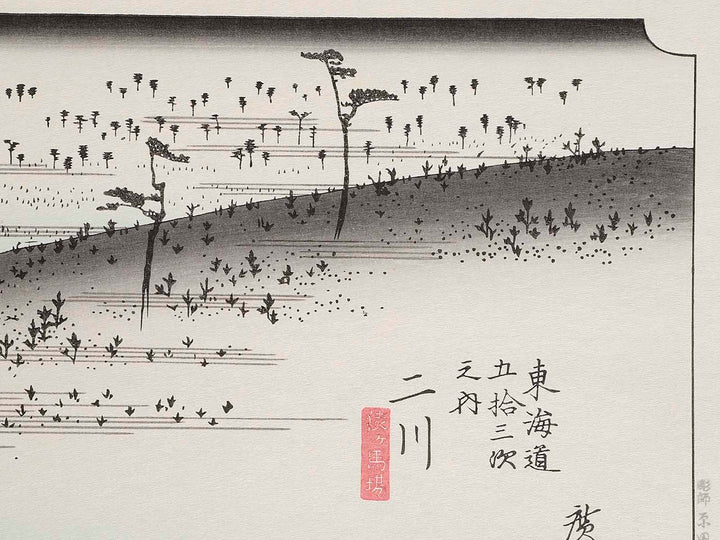 東海道
五拾三次
之内
二川
猿ヶ馬場
廣
彫師 原田